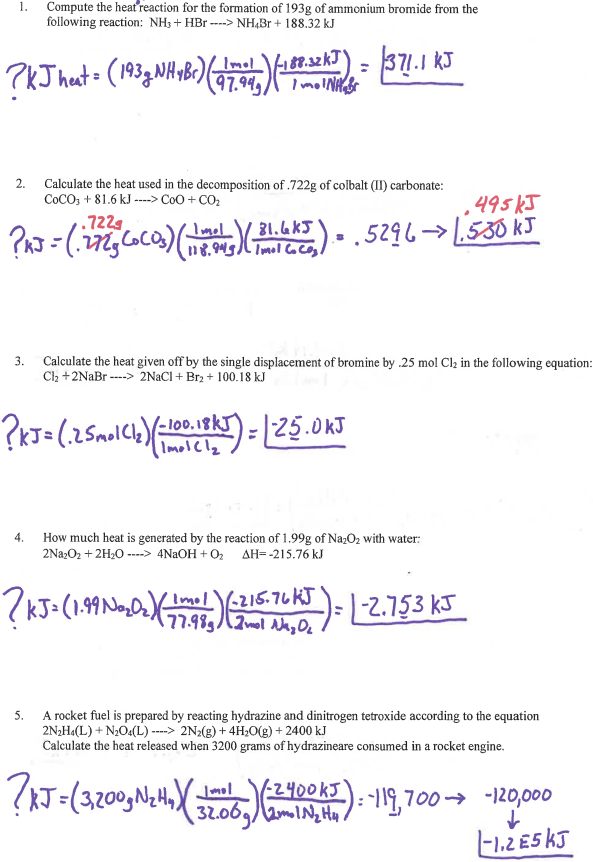 1. Compute the heat reaction for the formation of 193g of ammonium bromide from the
following reaction: NH₃ + HBr ----> NH₄Br + 188.32 kJ
?kJ heat = (193g NH₄Br)(1mol/97.94g)(-188.32kJ/1molNH₄Br) = 371.1 kJ
2. Calculate the heat used in the decomposition of .722g of colbalt (II) carbonate:
CoCO₃ + 81.6 kJ ----> CoO + CO₂
.495kJ
.722g
?kJ = (.772g CoCO₃)(1mol/118.94g)(81.6kJ/1molCoCO₃) = .5296 → .530 kJ
3. Calculate the heat given off by the single displacement of bromine by .25 mol Cl₂ in the following equation:
Cl₂ + 2NaBr ----> 2NaCl + Br₂ + 100.18 kJ
?kJ = (.25molCl₂)(-100.18kJ/1molCl₂) = -25.0kJ
4. How much heat is generated by the reaction of 1.99g of Na₂O₂ with water:
2Na₂O₂ + 2H₂O ----> 4NaOH + O₂ ΔH= -215.76 kJ
?kJ = (1.99 Na₂O₂)(1mol/77.98g)(-215.76kJ/2mol Na₂O₂) = -2.753 kJ
5. A rocket fuel is prepared by reacting hydrazine and dinitrogen tetroxide according to the equation
2N₂H₄(L) + N₂O₄(L) ----> 2N₂(g) + 4H₂O(g) + 2400 kJ
Calculate the heat released when 3200 grams of hydrazineare consumed in a rocket engine.
?kJ = (3,200g N₂H₄)(1mol/32.06g)(-2400kJ/2molN₂H₄) = -119,700 → -120,000
↓
-1.2E5 kJ